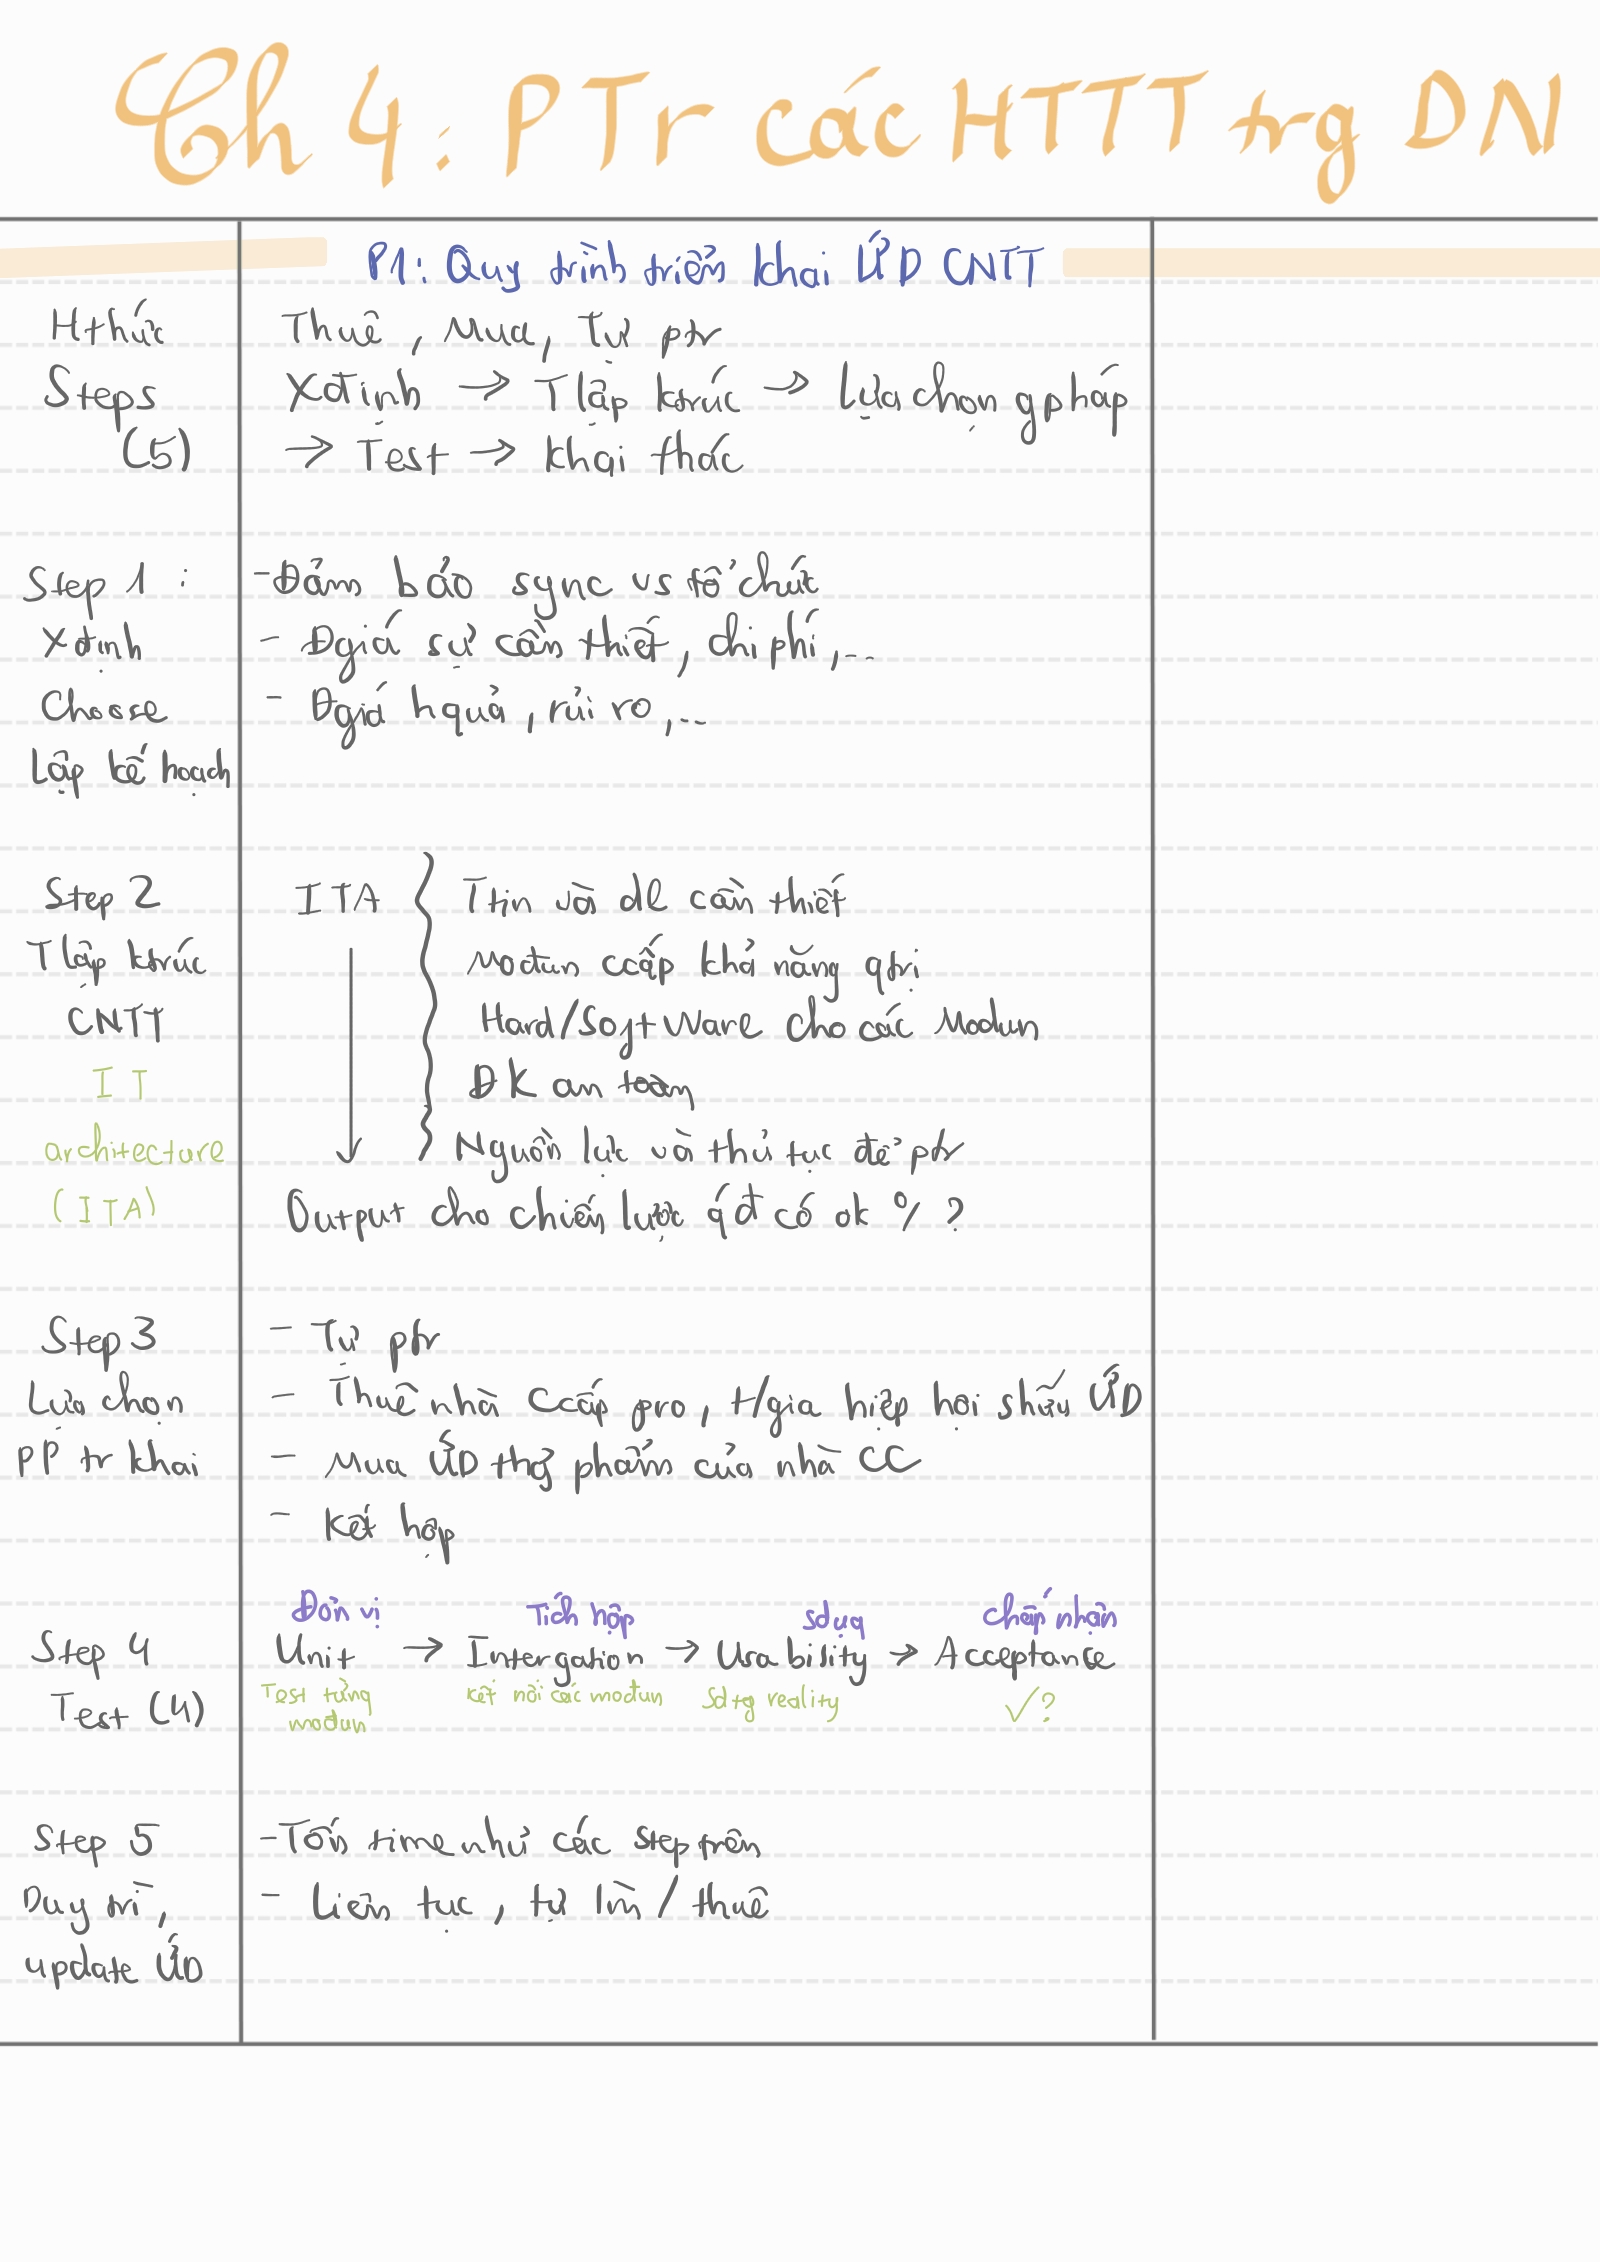 Ch 4: PTr các HTTT trg DN
P1: Quy trình triển khai ỨD CNTT
Hthức
Thuê, Mua, Tự ptr
Steps
(5)
Xđịnh → Tlập ktrúc → Lựa chọn gpháp
→ Test → khai thác
Step 1:
Xđịnh
Choose
Lập kế hoạch
- Đảm bảo sync vs tổ chức
- Đgiá sự cần thiết, chi phí,...
- Đgiá hquả, rủi ro,...
Step 2
Tlập ktrúc
CNTT
IT
architecture
(ITA)
ITA
Ttin và dl cần thiết
Mođun ccấp khả năng qtrị
Hard/SoftWare cho các Modun
ĐK an toàn
Nguồn lực và thủ tục để ptr
Output cho chiến lược qđ có ok % ?
Step 3
Lựa chọn
PP tr khai
- Tự ptr
- Thuê nhà Ccấp pro, t/gia hiệp hội shữu ỨD
- Mua ỨD thg phẩm của nhà CC
- Kết hợp
Step 4
Test (4)
Đơn vị Tích hợp sdụg chấp nhận
Unit → Intergation → Usability → Acceptance
Test từng kết nối các mođun Sdtg reality ✓?
mođun
Step 5
Duy trì,
update ỨD
- Tốn time như các step trên
- Liên tục, tự lm̀ / thuê